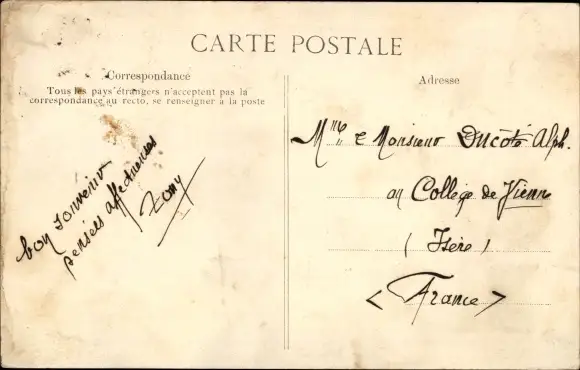 CARTE POSTALE
Correspondance
Tous les pays étrangers n'acceptent pas la
correspondance au recto, se renseigner à la poste
bon souvenir
pensées affectueuses
Adresse
Mme & Monsieur Ducoté Alph.
au Collège de Vienne
(Isère)
<France>